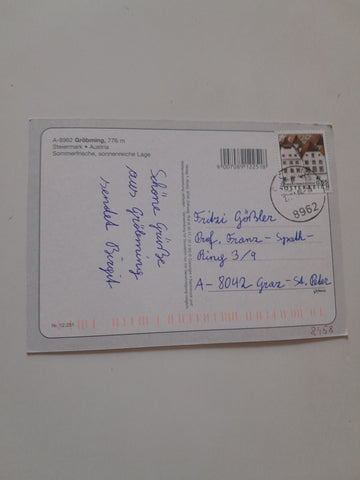 A-8962 Gröbming, 776 m
Steiermark • Austria
Sommerfrische, sonnenreiche Lage
Schöne Grüße
aus Gröbming
sendet Birgit
9007089122518
8962
Fritzi Gößler
Prof. Franz-Spath-
Ring 3/9
A-8042 Graz-St. Peter
2458